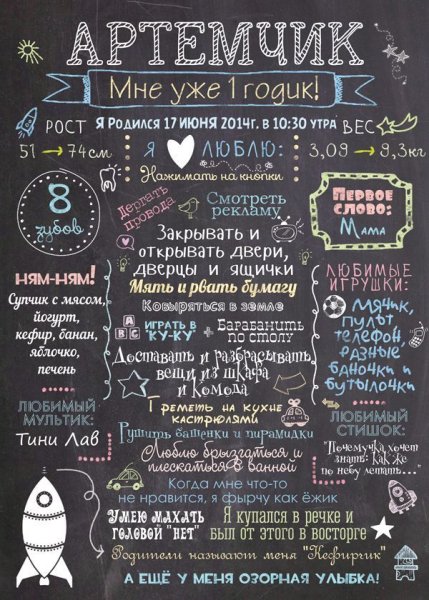 АРТЕМЧИК
Мне уже 1 годик!
Я РОДИЛСЯ 17 ИЮНЯ 2014г. В 10:30 УТРА
РОСТ
51 → 74см
ВЕС
3,09 → 9,3кг
Я ЛЮБЛЮ:
Нажимать на кнопки
8
зубов
Дергать
провода
Смотреть
рекламу
Первое
слово:
Мама
Закрывать и
открывать двери,
дверцы и ящички
Мять и рвать бумагу
Ковыряться в земле
ABC
ИГРАТЬ В
"КУ-КУ"
+ Барабанить
по столу
Доставать и разбрасывать
вещи из шкафа
и комода
Греметь на кухне
кастрюлями
Рушить башенки и пирамидки
НЯМ-НЯМ!
Супчик с мясом,
йогурт,
кефир, банан,
яблочко,
печень
ЛЮБИМЫЕ
ИГРУШКИ:
мячик,
пульт
телефон,
разные
баночки и
бутылочки
ЛЮБИМЫЙ
МУЛЬТИК:
Тини Лав
ЛЮБИМЫЙ
СТИШОК:
"Почемучка хочет
знать: как же
по небу летать..."
Люблю брызгаться и
плескаться в ванной
Когда мне что-то
не нравится, я фырчу как ёжик
УМЕЮ МАХАТЬ
ГОЛОВОЙ "НЕТ"
Я купался в речке и
был от этого в восторге
Родители называют меня "Кефирчик"
А ЕЩЁ У МЕНЯ ОЗОРНАЯ УЛЫБКА!